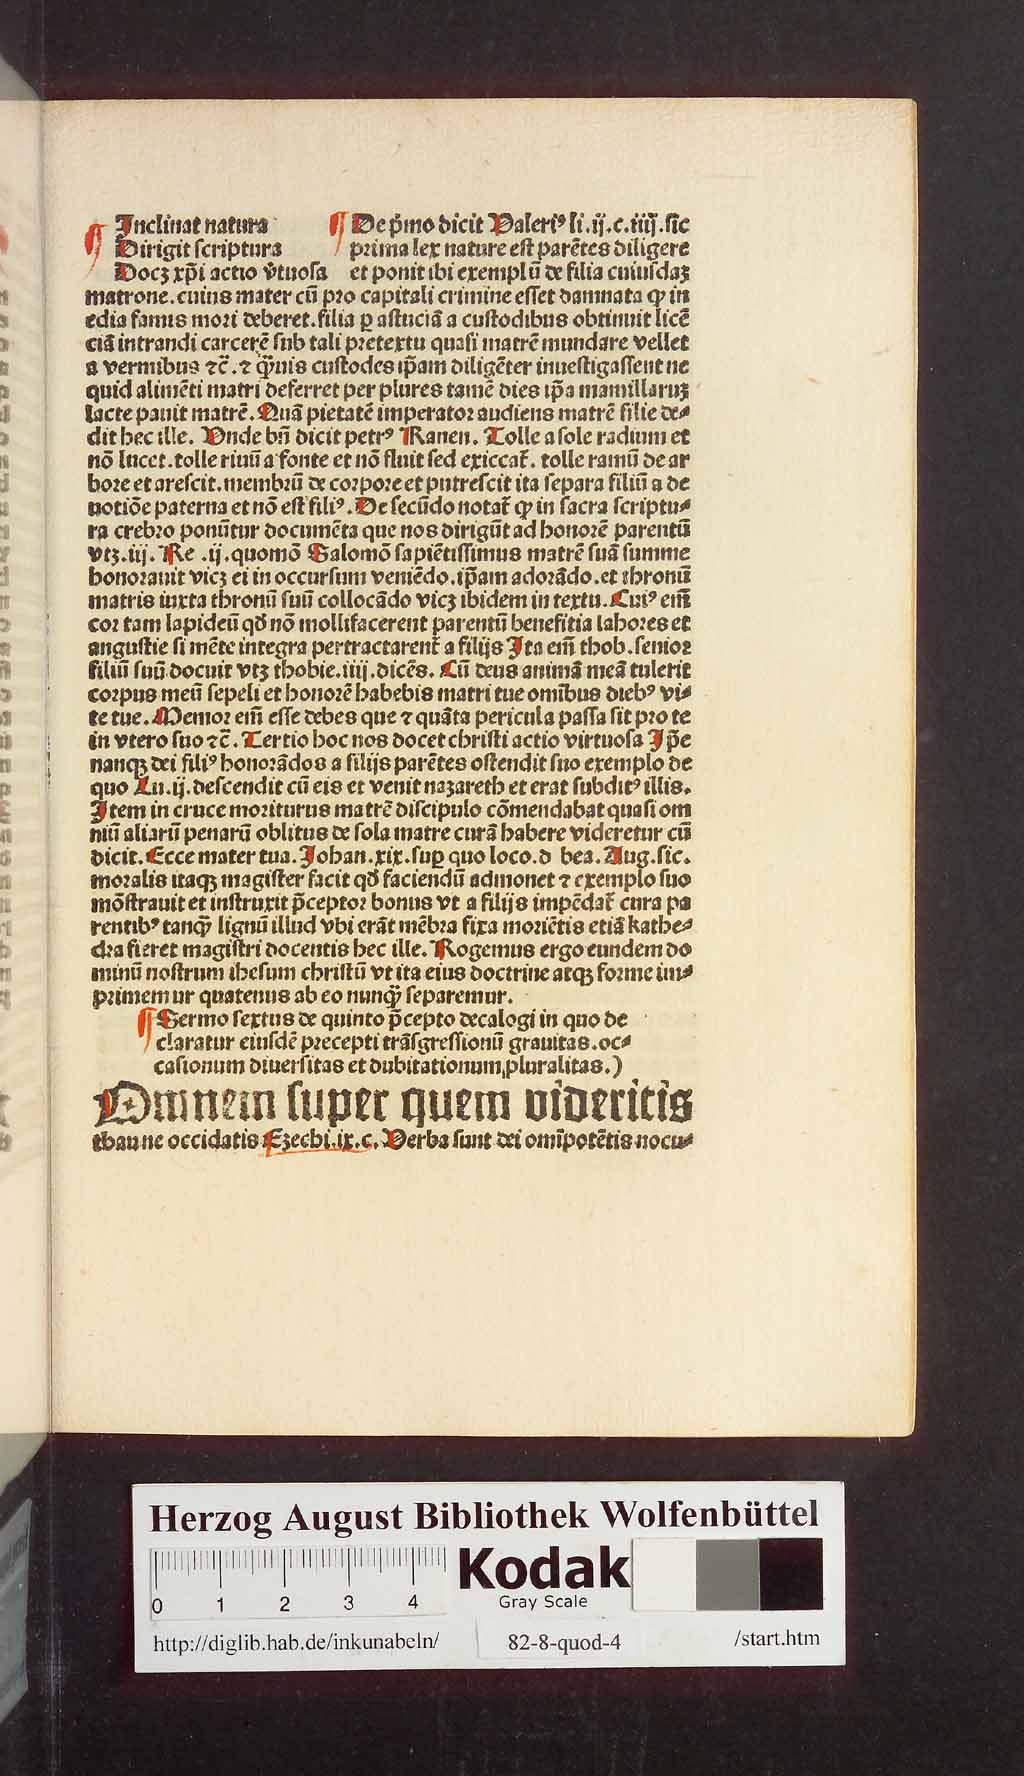 ¶ Inclinat natura
Dirigit scriptura
Docꝫ xp̄i actio v̄tuosa
¶ De p̄mo dicit Valeriꝰ li.ij.c.iiij.sic
prima lex nature est parētes diligere
et ponit ibi exemplū de filia cuiusdaꝫ
matrone.cuius mater cū pro capitali crimine esset damnata ꝙ in
edia famis mori deberet.filia ꝑ astuciā a custodibus obtinuit licē
ciā intrandi carcerē sub tali pretextu quasi matrē mundare vellet
a vermibus ⁊c̄.⁊ ꝙ̄uis custodes ip̄am diligēter inuestigassent ne
quid alimēti matri deferret per plures tamē dies ip̄a mamillaruꝫ
lacte pauit matrē.Quā pietatē imperator audiens matrē filie de⸗
dit hec ille. Vnde bn̄ dicit petrꝰ Rauen. Tolle a sole radium et
nō lucet.tolle riuū a fonte et nō fluit sed exiccat̄. tolle ramū de ar
bore et arescit.membrū de corpore et putrescit ita separa filiū a de
uotiōe paterna et nō est filiꝰ. De secūdo notat̄ ꝙ in sacra scriptu⸗
ra crebro ponūtur documēta que nos dirigūt ad honorē parentū
vtꝫ.iij. Re .ij.quomō Salomō sapiētissimus matrē suā summe
honorauit vicꝫ ei in occursum veniēdo.ip̄am adorādo.et thronū
matris iuxta thronū suū collocādo vicꝫ ibidem in textu.Cuiꝰ em̄
cor tam lapideū qđ nō mollifacerent parentū benefitia labores et
angustie si mēte integra pertractarent̄ a filijs Ita em̄ thob.senior
filiū suū docuit vtꝫ thobie.iiij.dicēs. Cū deus animā meā tulerit
corpus meū sepeli et honorē habebis matri tue omībus diebꝰ vi⸗
te tue.Memor em̄ esse debes que ⁊ quāta pericula passa sit pro te
in vtero suo ⁊c̄. Tertio hoc nos docet christi actio virtuosa Ip̄e
nanqꝫ dei filiꝰ honorādos a filijs parētes ostendit suo exemplo de
quo Lu.ij.descendit cū eis et venit nazareth et erat subditꝰ illis.
Item in cruce moriturus matrē discipulo cōmendabat quasi om
niū aliarū penarū oblitus de sola matre curā habere videretur cū
dicit.Ecce mater tua.Johan.xix.suꝑ quo loco.d bea.Aug.sic.
moralis itaqꝫ magister facit qđ faciendū admonet ⁊ exemplo suo
mōstrauit et instruxit p̄ceptor bonus vt a filijs impēdat̄ cura pa
rentibꝰ tanqꝙ̄ lignū illud vbi erāt mēbra fixa moriētis etiā kathe⸗
dra fieret magistri docentis hec ille. Rogemus ergo eundem do
minū nostrum ihesum christū vt ita eius doctrine atqꝫ forme im⸗
primemur quatenus ab eo nunqꝙ̄ separemur.
¶ Sermo sextus de quinto p̄cepto decalogi in quo de
claratur eiusdē precepti trāsgressionū grauitas.oc⸗
casionum diuersitas et dubitationum pluralitas.)
Omnem super quem videritis
thau ne occidatis Ezechi.ix.c. Verba sunt dei omīpotētis nocu⸗
Herzog August Bibliothek Wolfenbüttel
0 1 2 3 4
Kodak
Gray Scale
http://diglib.hab.de/inkunabeln/
82-8-quod-4
/start.htm